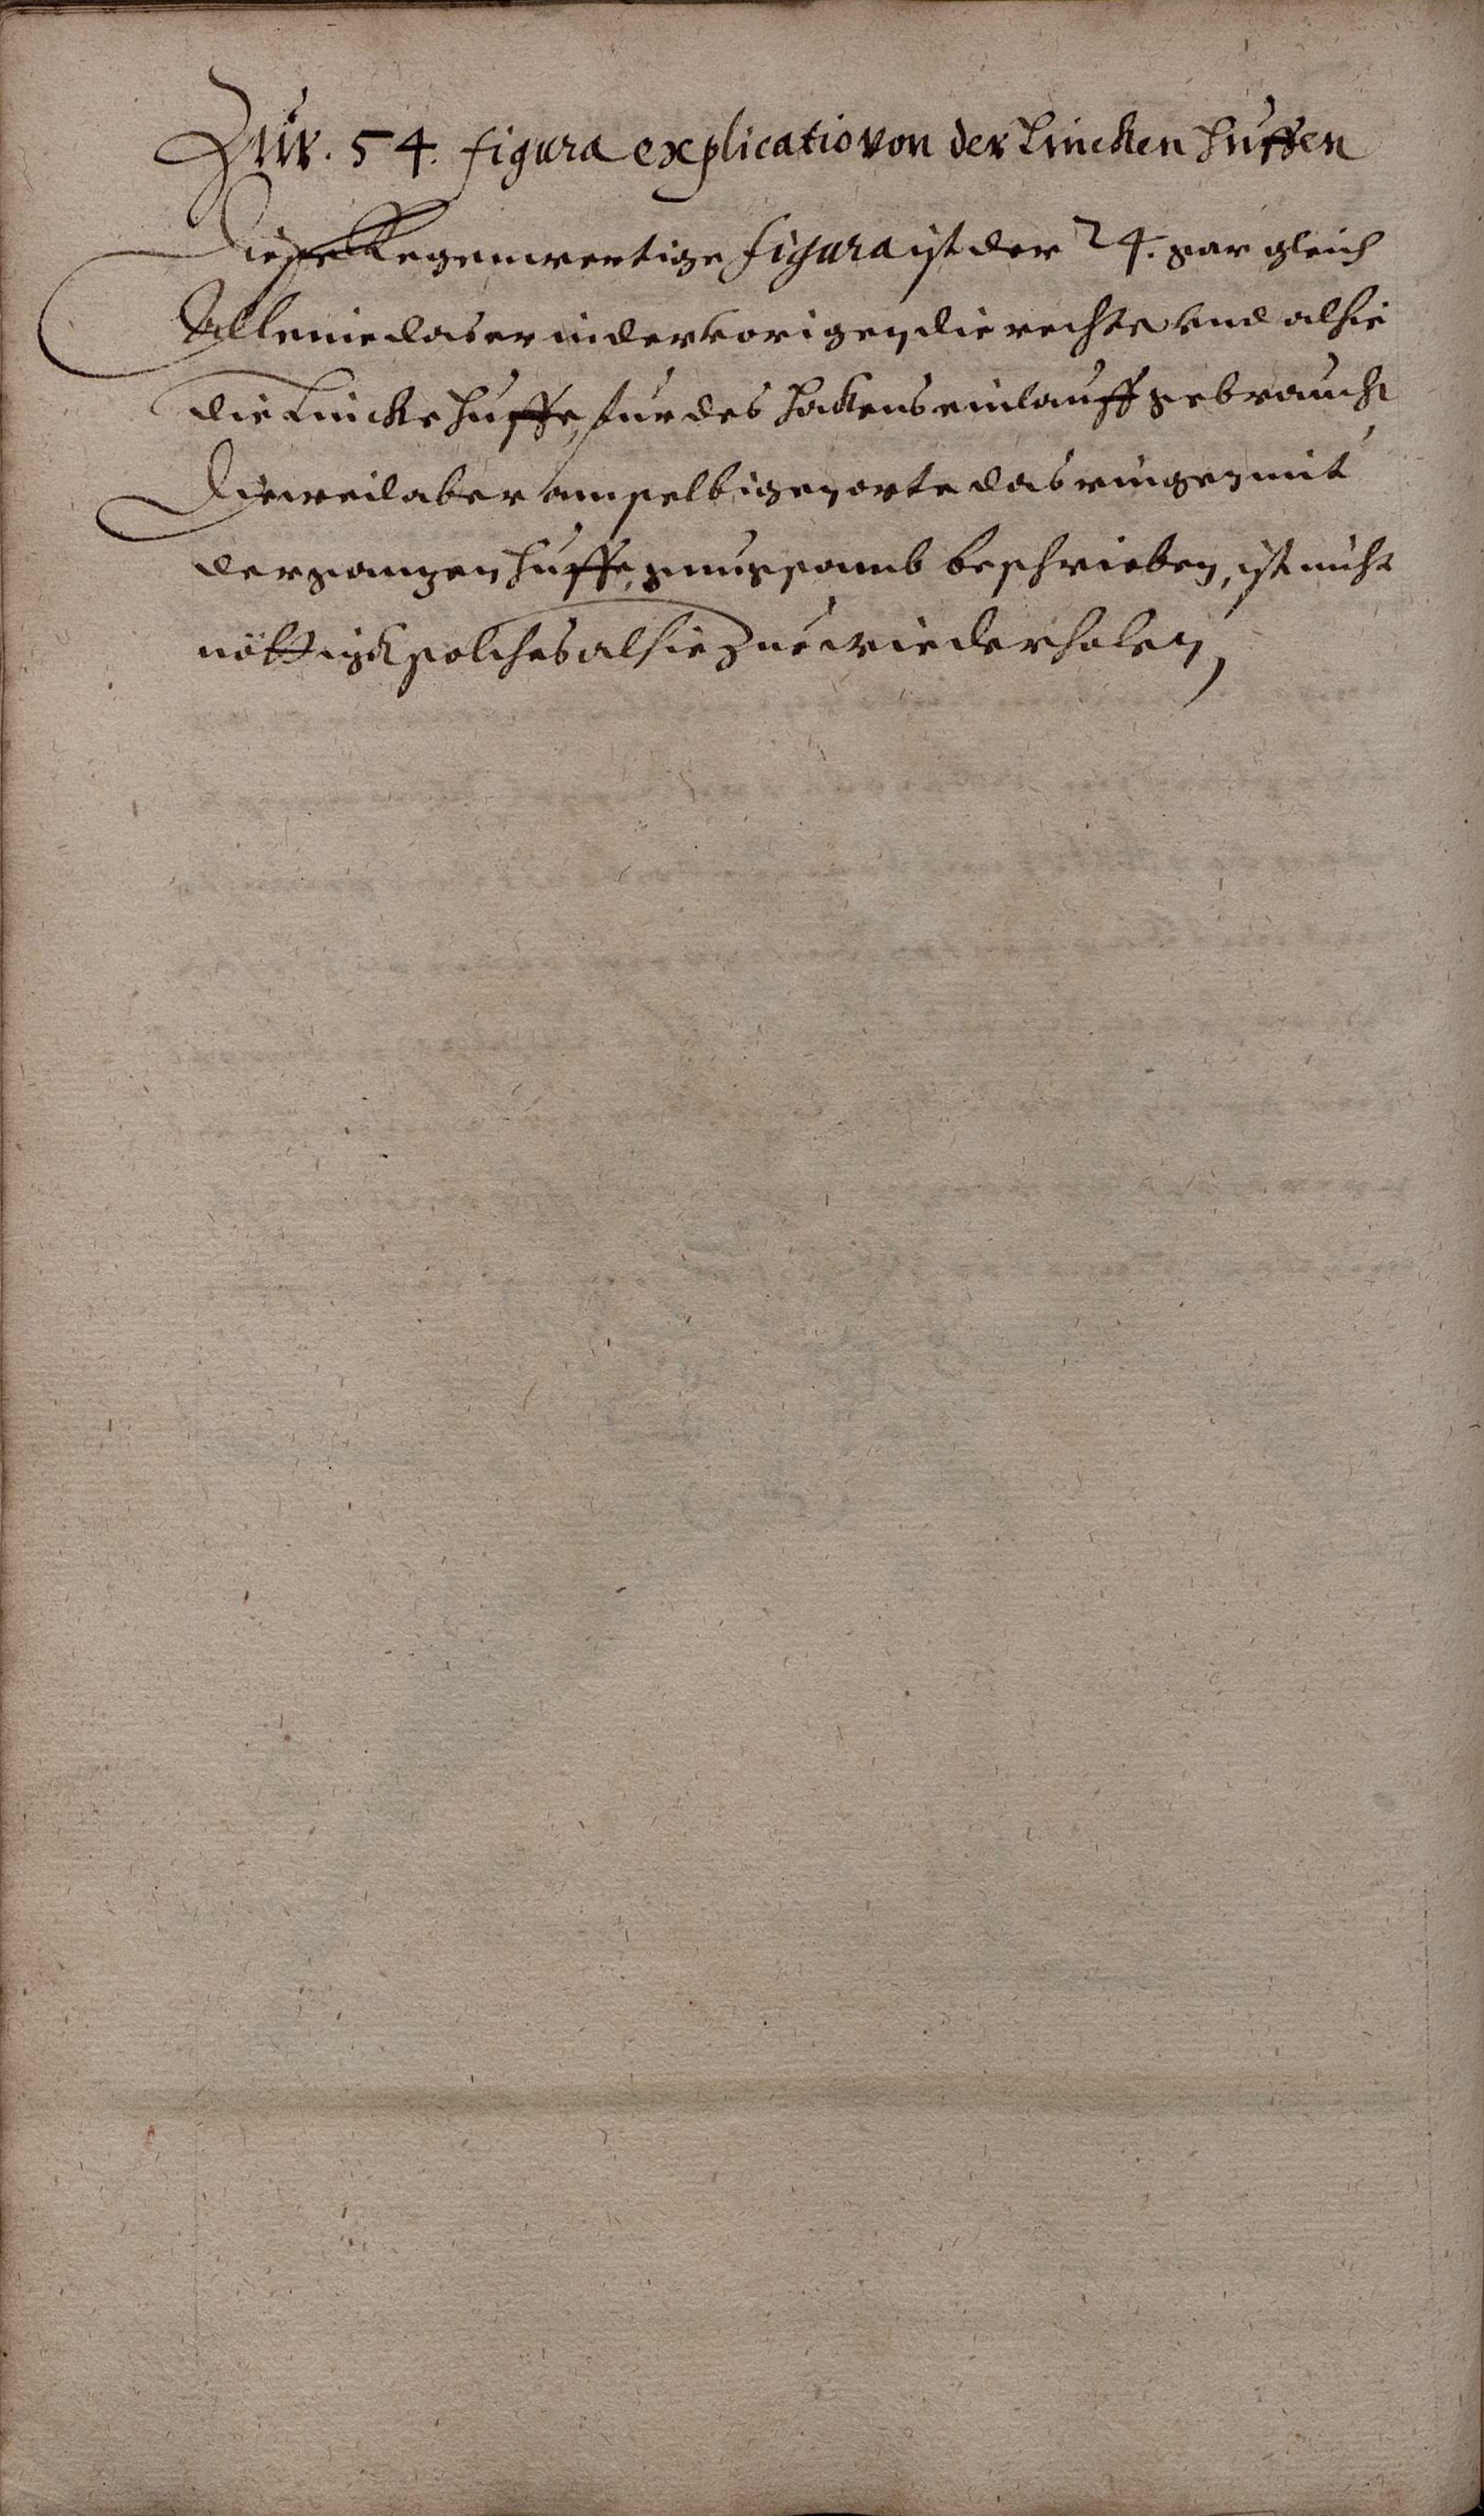 Zur. 54. figura explicatio von der Lincken Huffen
Diese kegenwertige figura ist der 24. gar gleich
Alleine das er in der vorigen die rechte vnd alhie
die Lincke Huffe, fur des Hakens einlauff gebraucht
Dieweil aber am selbigen orte das ringen mit
der ganzen Huffe, gnugsamb beschrieben, ist nicht
nöttigk solches alhie zue wiederholen,